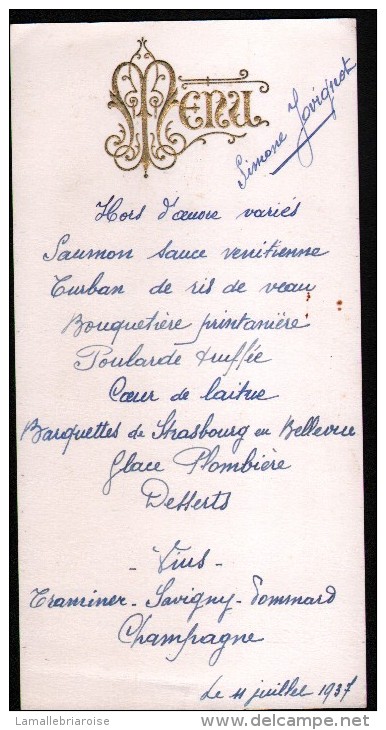 Menu
Simone Jovignot
Hors d'œuvre variés
Saumon sauce venitienne
Turban de ris de veau
Bouquetière printanière
Poularde truffée
Cœur de laitue
Barquettes de Strasbourg en Bellevue
Glace Plombière
Desserts
- Vins -
Traminer - Savigny - Pommard
Champagne
Le 11 juillet 1937
Lamallebriaroise
delcampe.net